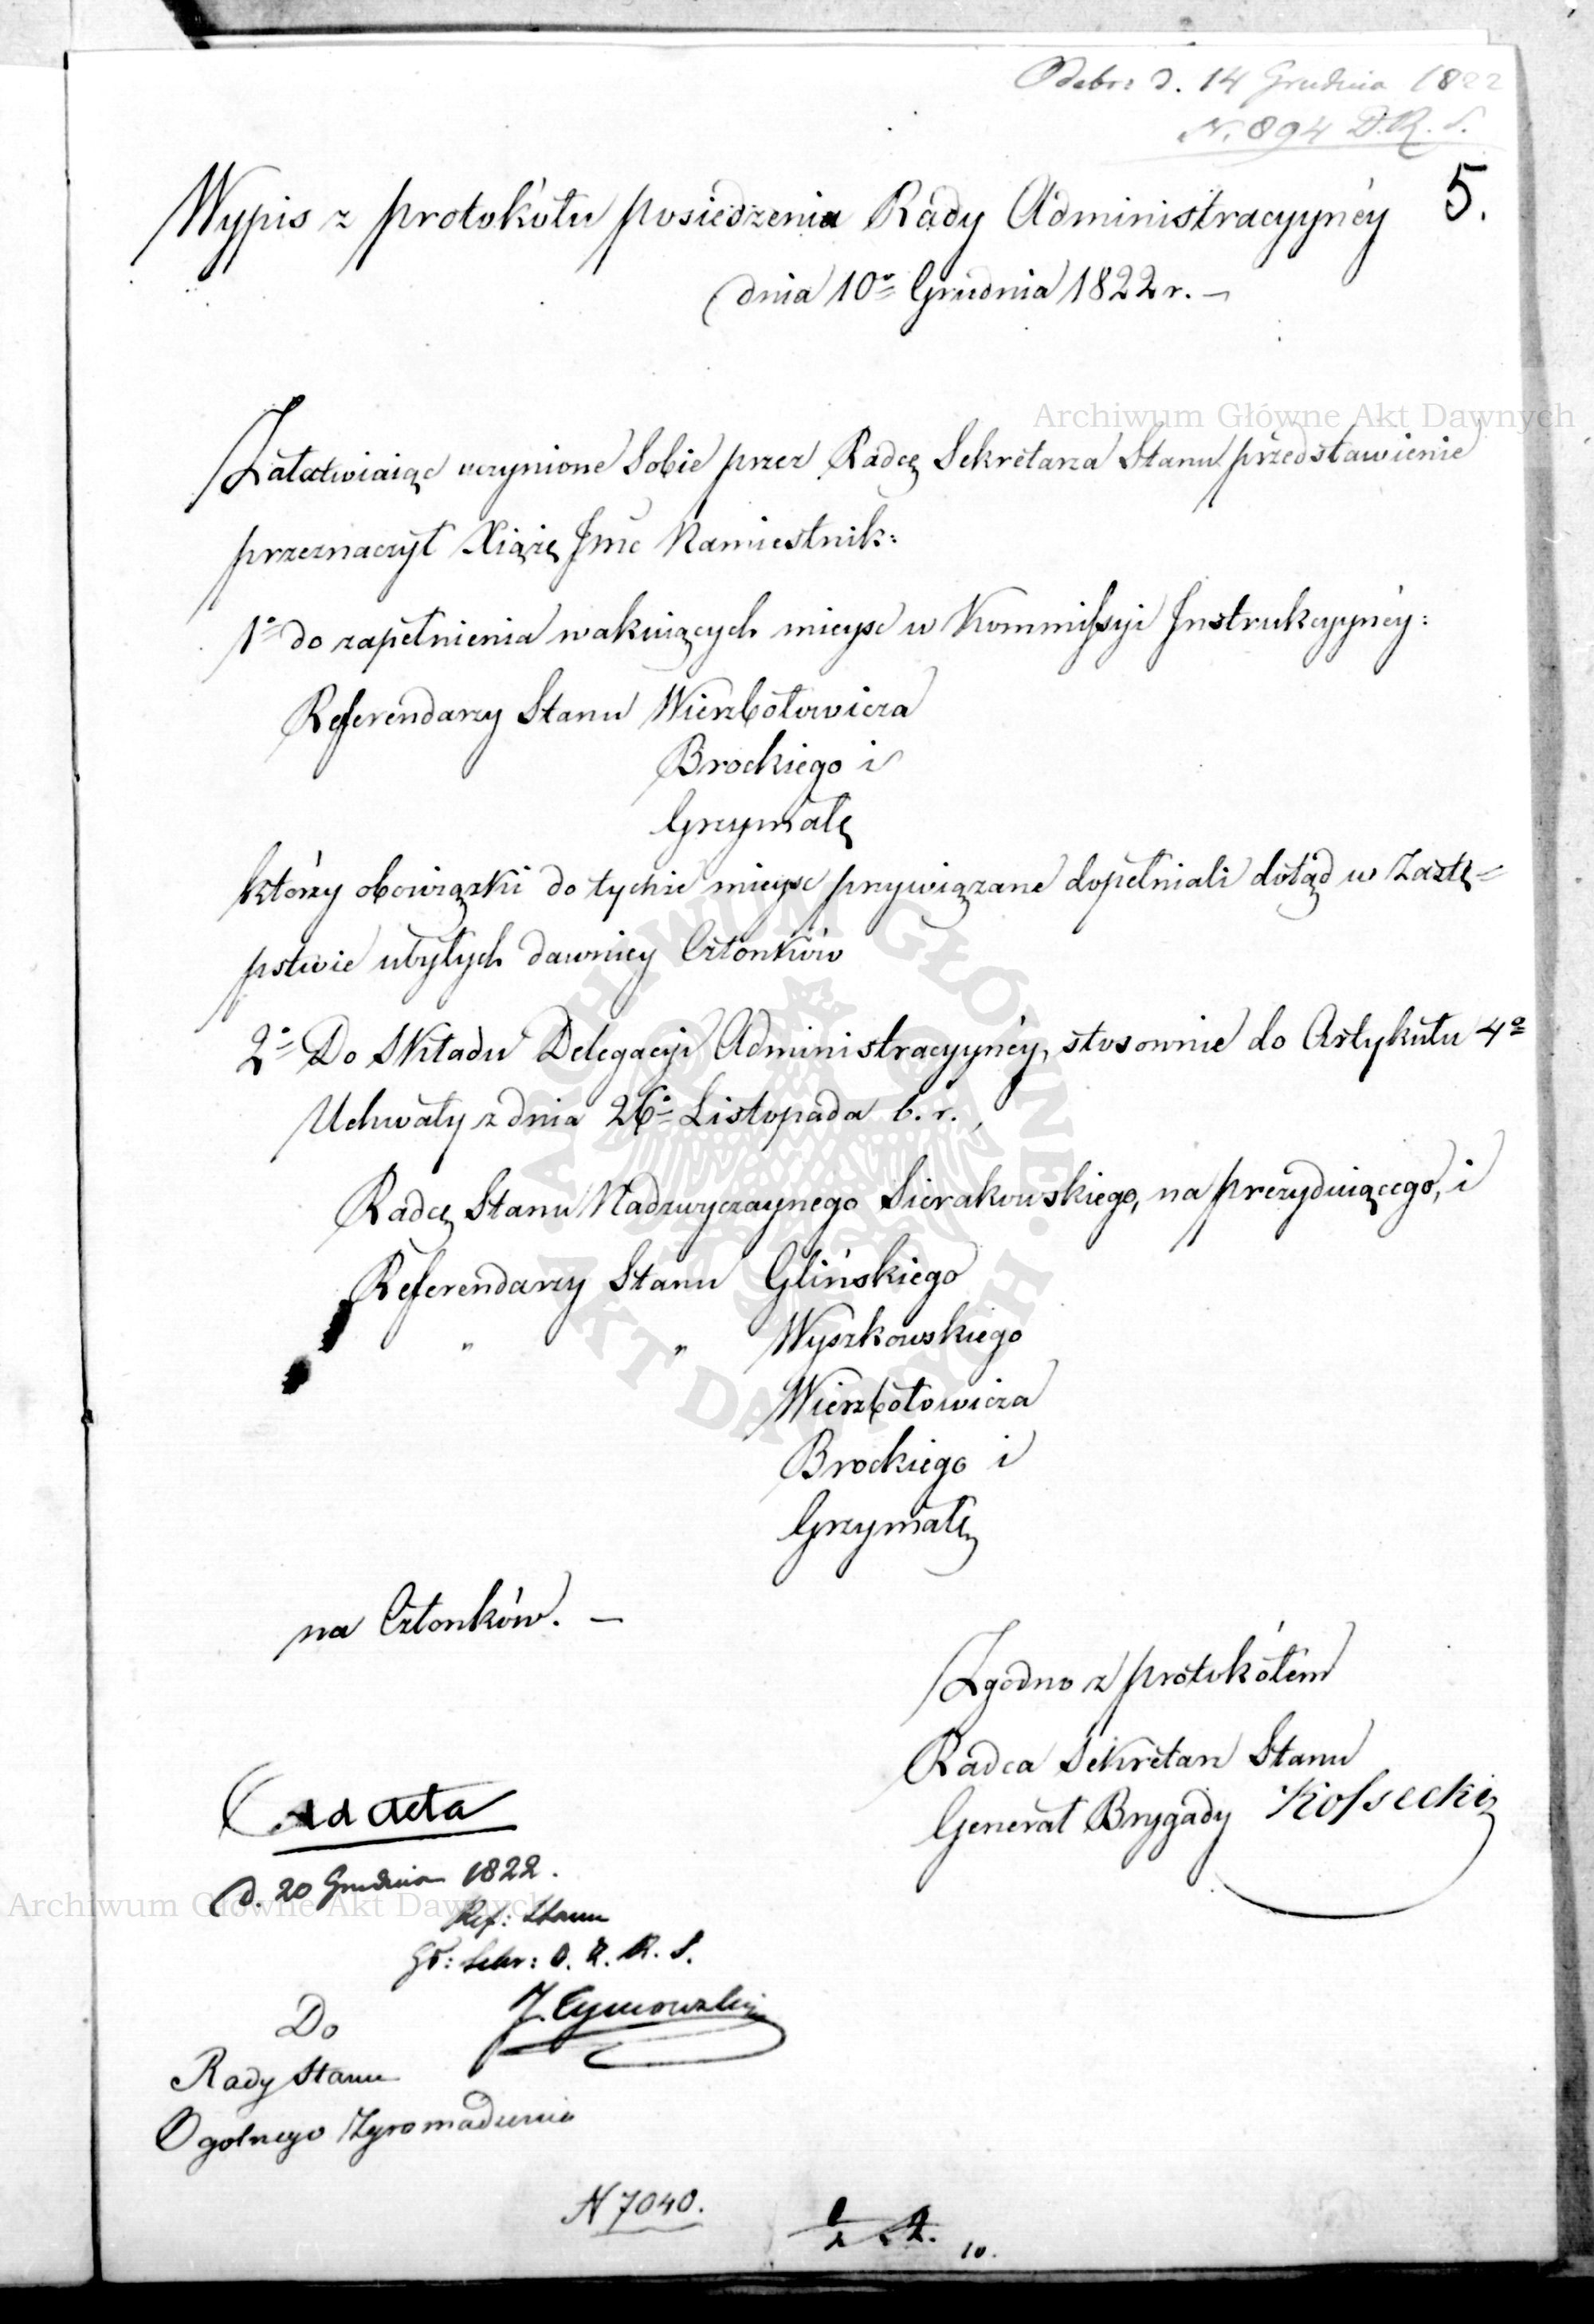 Odebr: d. 14 Grudnia 1822
N. 894 D.R.S.
5.
Wypis z protokółu posiedzenia Rady Administracyynéy
dnia 10º Grudnia 1822 r. –
Archiwum Główne Akt Dawnych
Załatwiaiąc uczynione Sobie przez Radcę Sekretarza Stanu przedstawienie
przeznaczył Xiążę Jmć Namiestnik:
1º do zapełnienia wakuiących mieysc w Kommissyi Instrukcyynéy:
Referendarzy Stanu Wierzbołowicza
Brockiego i
Grzymałę
którzy obowiązki do tychże mieysc przywiązane dopełniali dotąd w Zastę=
pstwie ubyłych dawniey Członków
2º Do Składu Delegacyi Administracyynéy, stosownie do Artykułu 4º
Uchwały z dnia 26º Listopada b. r.,
Radcę Stanu Nadzwyczaynego Sierakowskiego, na prezyduiącego, i
Referendarzy Stanu Glińskiego
" " Wyszkowskiego
Wierzbołowicza
Brockiego i
Grzymałę
na Członków. –
Zgodno z protokółem
Radca Sekretarz Stanu
Generał Brygady Kossecki
Ad acta
d. 20 Grudnia 1822.
Archiwum Główne Akt Dawnych
Ref: Stanu
Sekr: R. S.
J. Tymowski
Do
Rady Stanu
Ogolnego Zgromadzenia
N 7040.
10.
ARCHIWUM GŁÓWNE AKT DAWNYCH